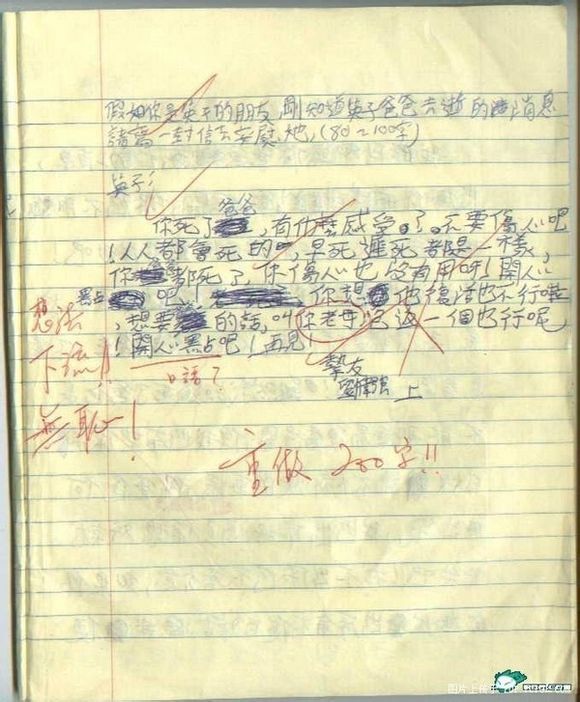 假如你是英子的朋友,剛知道英子爸爸去逝的消息
請寫一封信去安慰她,(80~100字)
英子:
爸爸
你死了,有什麼感受。了。不要傷心吧
!人人都會死的,早死遲死都是一樣,
你都死了,你傷心也沒有用呀!開心
點吧!你想他復活也不行啦
,想要的話,叫你老母泡返一個也行呢
!開心點吧!再見!
摯友
上
想法
下流!!
無恥!
口語?
重做 200字!!